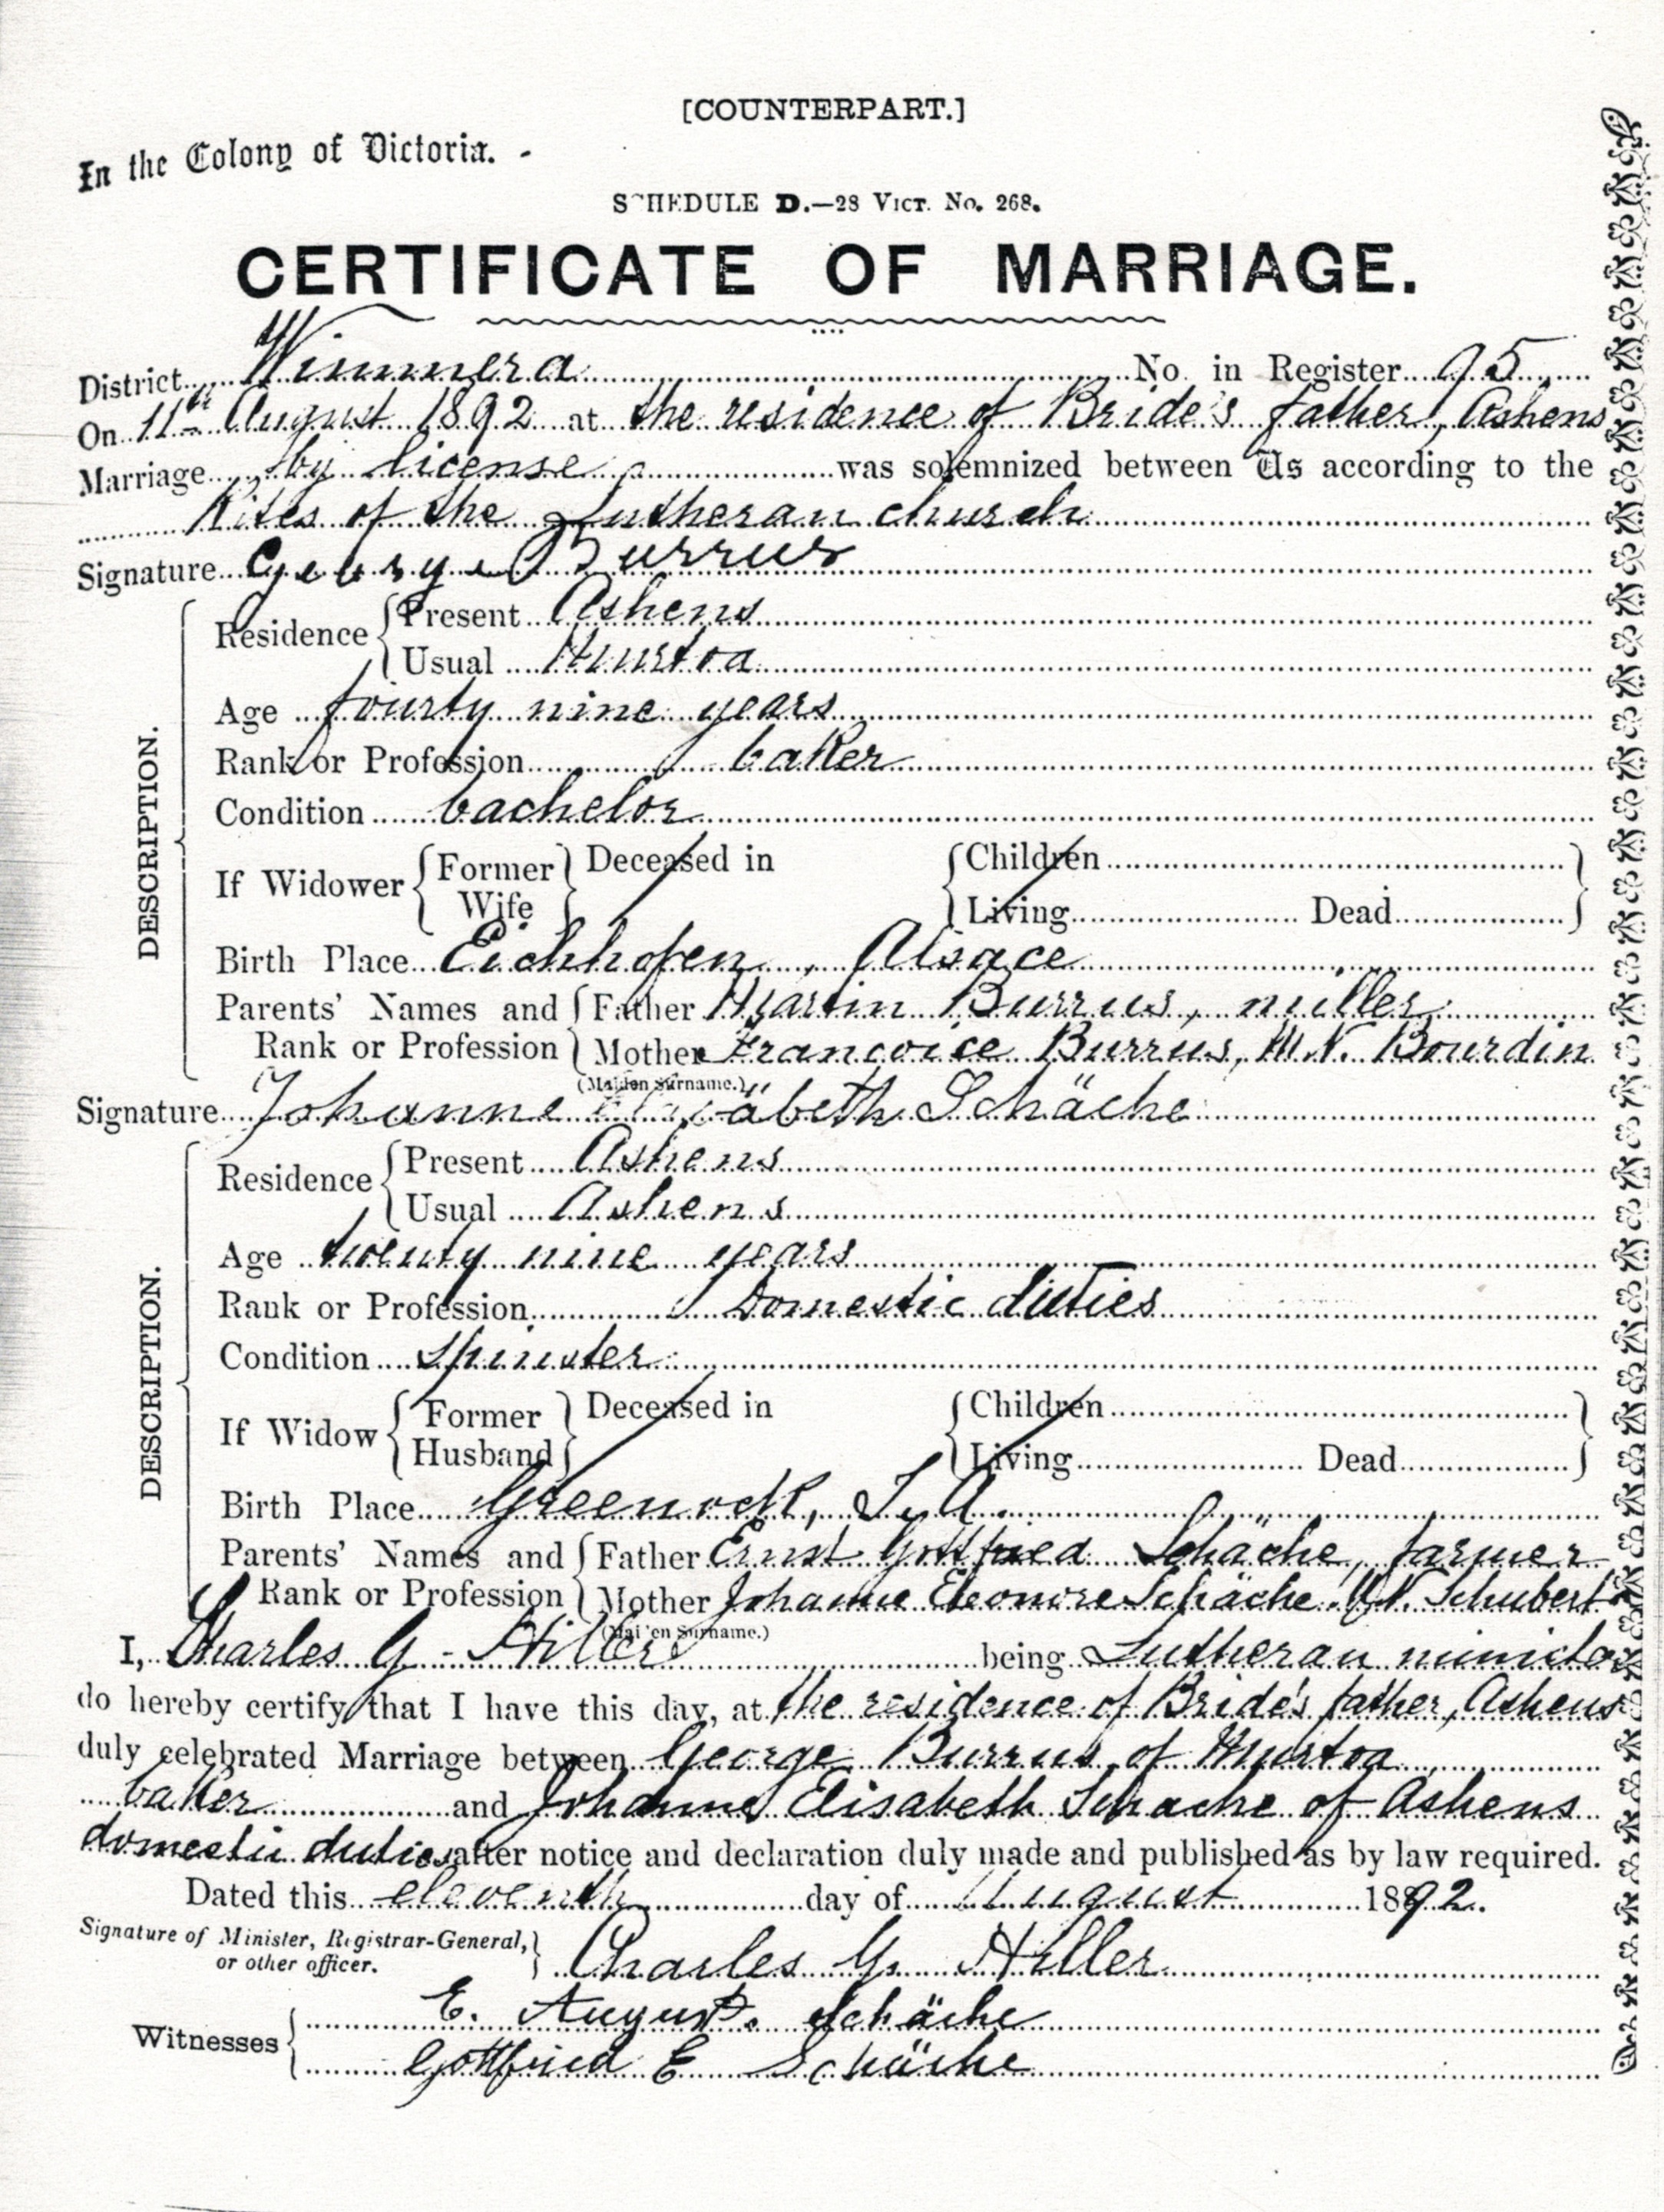 [COUNTERPART.]
In the Colony of Victoria.
SCHEDULE D.—28 VICT. No. 268.
CERTIFICATE OF MARRIAGE.
District Wimmera No. in Register 95
On 11th August 1892 at the residence of Bride's father, Ashens
Marriage by license was solemnized between Us according to the
Rites of the Lutheran church
Signature George Burrus
DESCRIPTION.
Residence Present Ashens
Usual Murtoa
Age fourty nine years
Rank or Profession baker
Condition bachelor
If Widower Former Wife Deceased in Children
Living Dead
Birth Place Eichhofen, Alsace
Parents' Names and Father Martin Burrus, miller
Rank or Profession Mother Francoice Burrus, M.N. Bourdin
(Maiden Surname.)
Signature Johanne Elisabeth Schäche
DESCRIPTION.
Residence Present Ashens
Usual Ashens
Age twenty nine years
Rank or Profession Domestic duties
Condition spinster
If Widow Former Husband Deceased in Children
Living Dead
Birth Place Greenock, S.A.
Parents' Names and Father Ernst Gottfried Schäche, farmer
Rank or Profession Mother Johanne Eleonore Schäche M.N. Schubert
(Maiden Surname.)
I, Charles G. Hiller being Lutheran minister
do hereby certify that I have this day, at the residence of Bride's father, Ashens
duly celebrated Marriage between George Burrus of Murtoa
baker and Johanne Elisabeth Schache of Ashens
domestic duties after notice and declaration duly made and published as by law required.
Dated this eleventh day of August 1892.
Signature of Minister, Registrar-General,
or other officer. Charles G. Hiller
Witnesses E. August. Schäche
Gottfried E Schäche